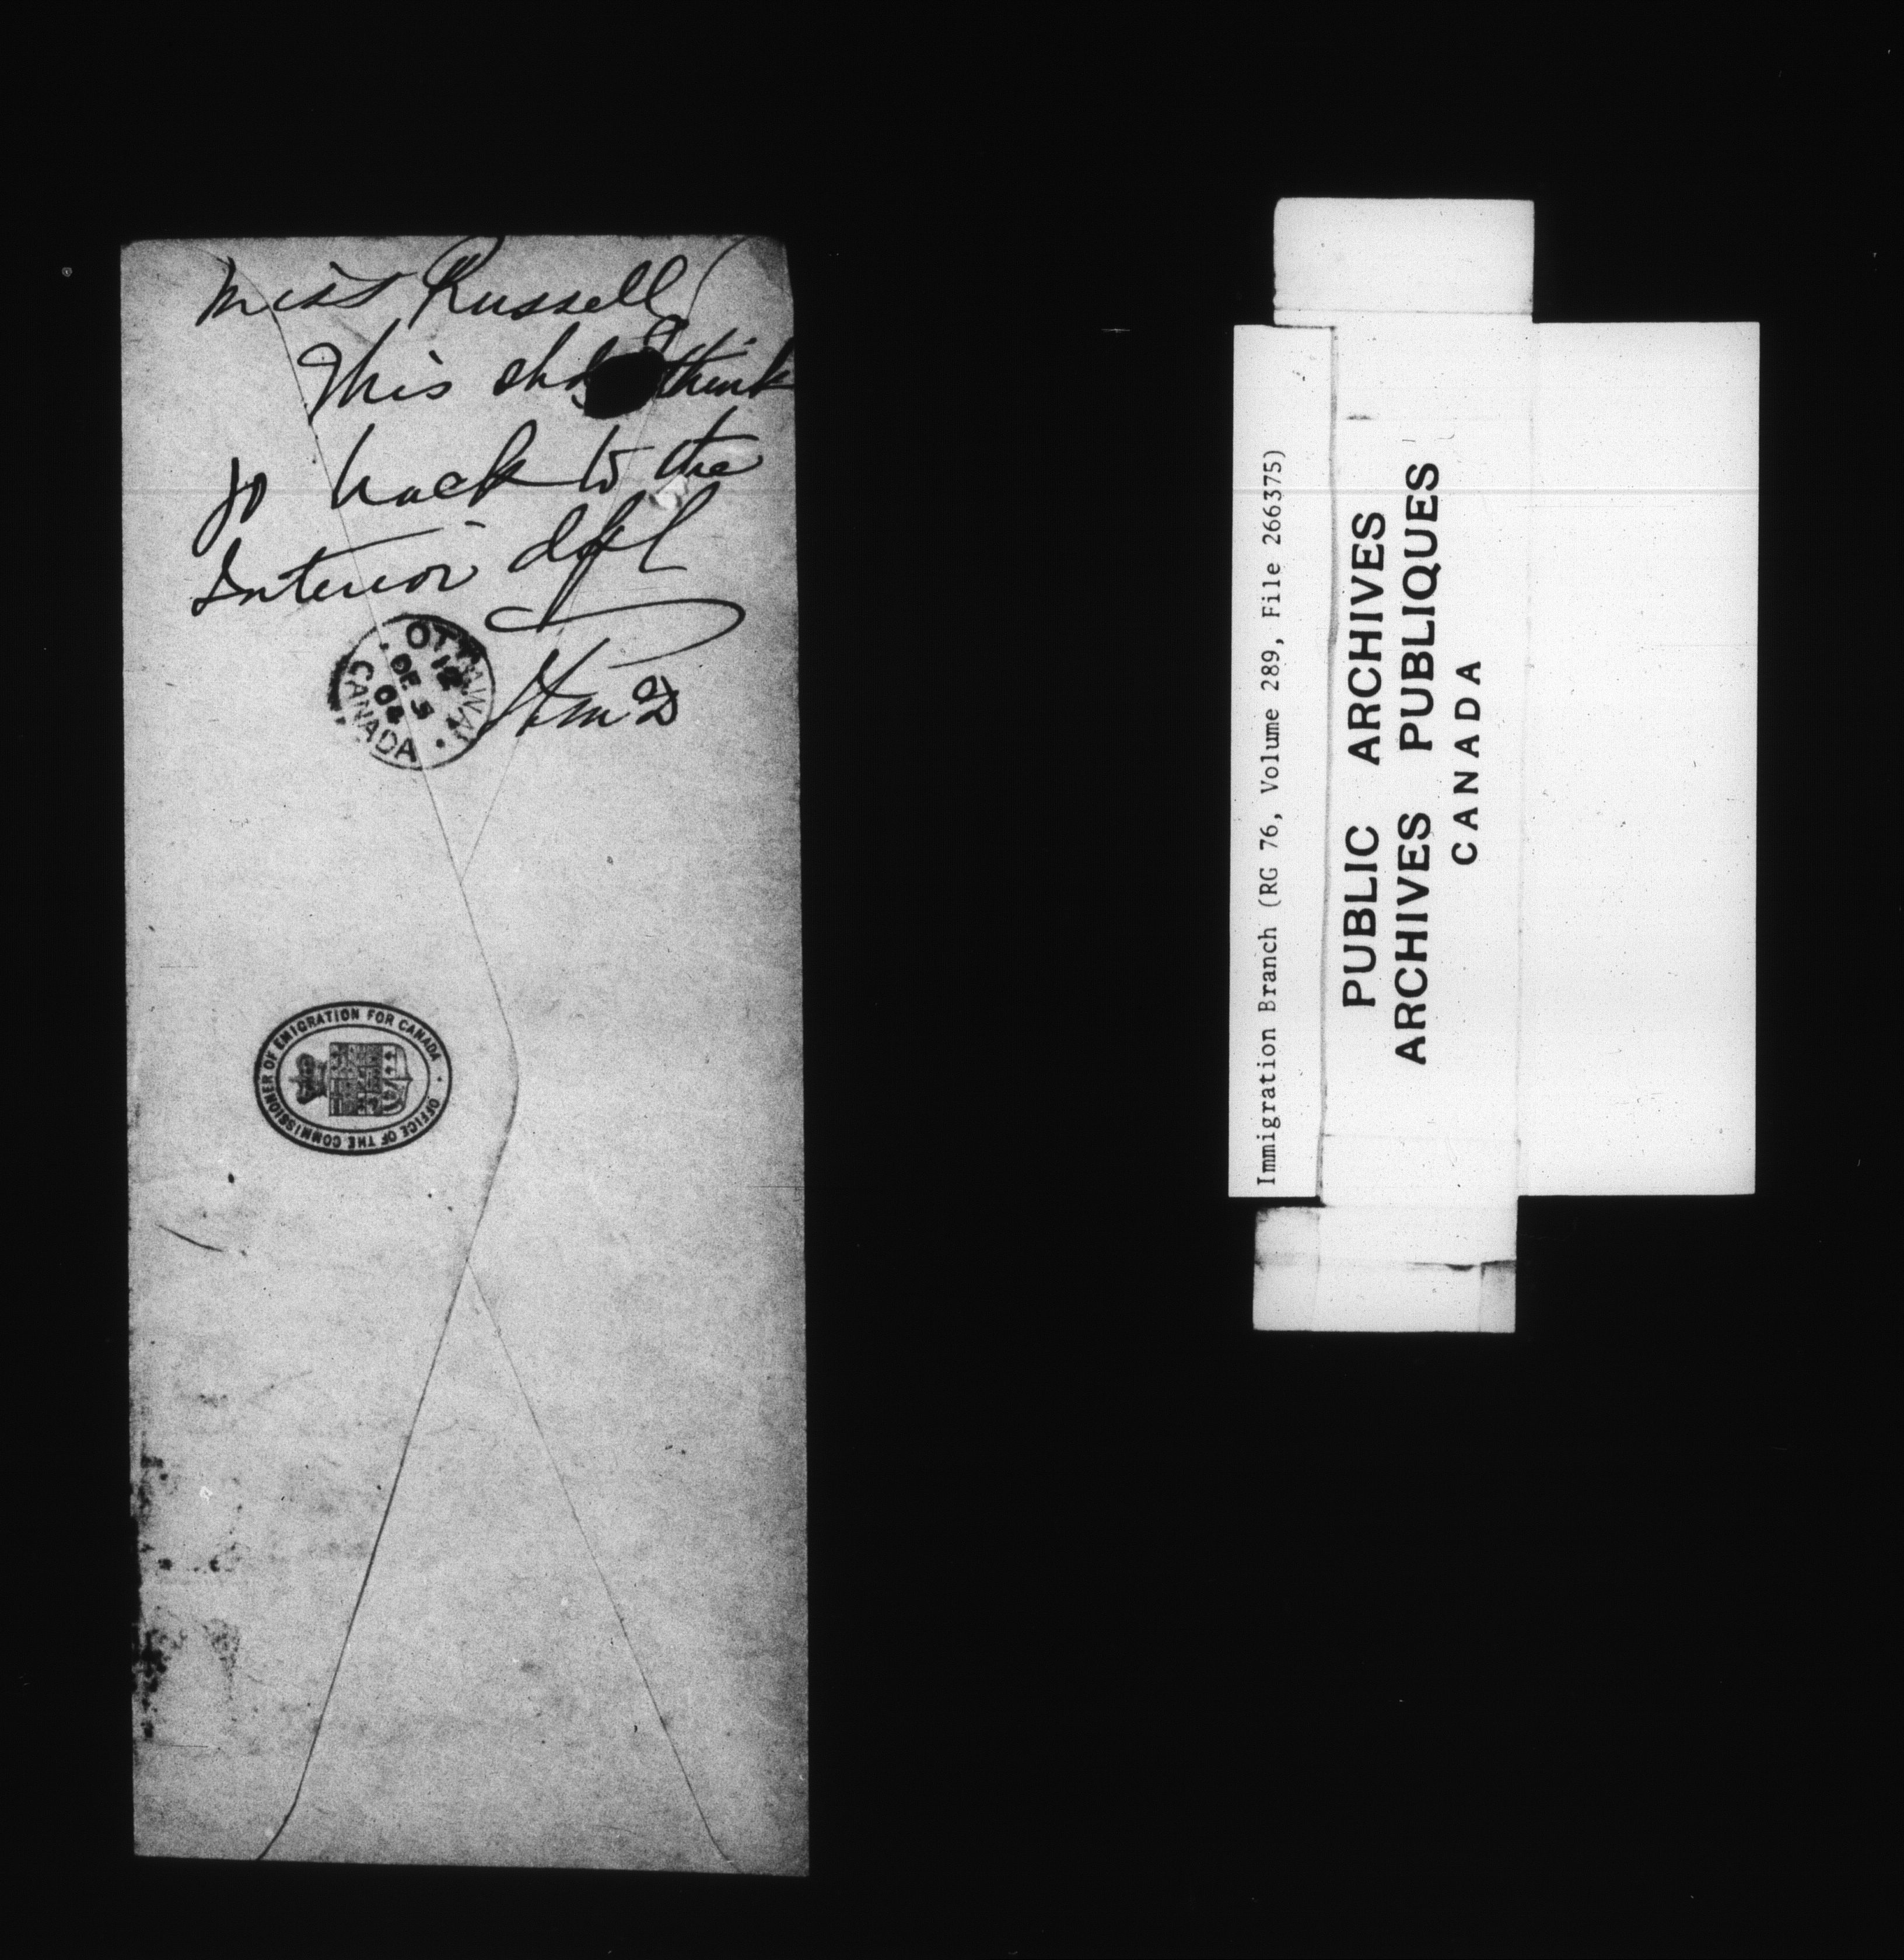 Miss Russell
This shd think
go back to the
Interior dept
OTTAWA
12
DE 5
04
CANADA
OFFICE OF THE COMMISSIONER OF EMIGRATION FOR CANADA
Immigration Branch (RG 76, Volume 289, File 266375)
PUBLIC ARCHIVES
ARCHIVES PUBLIQUES
CANADA